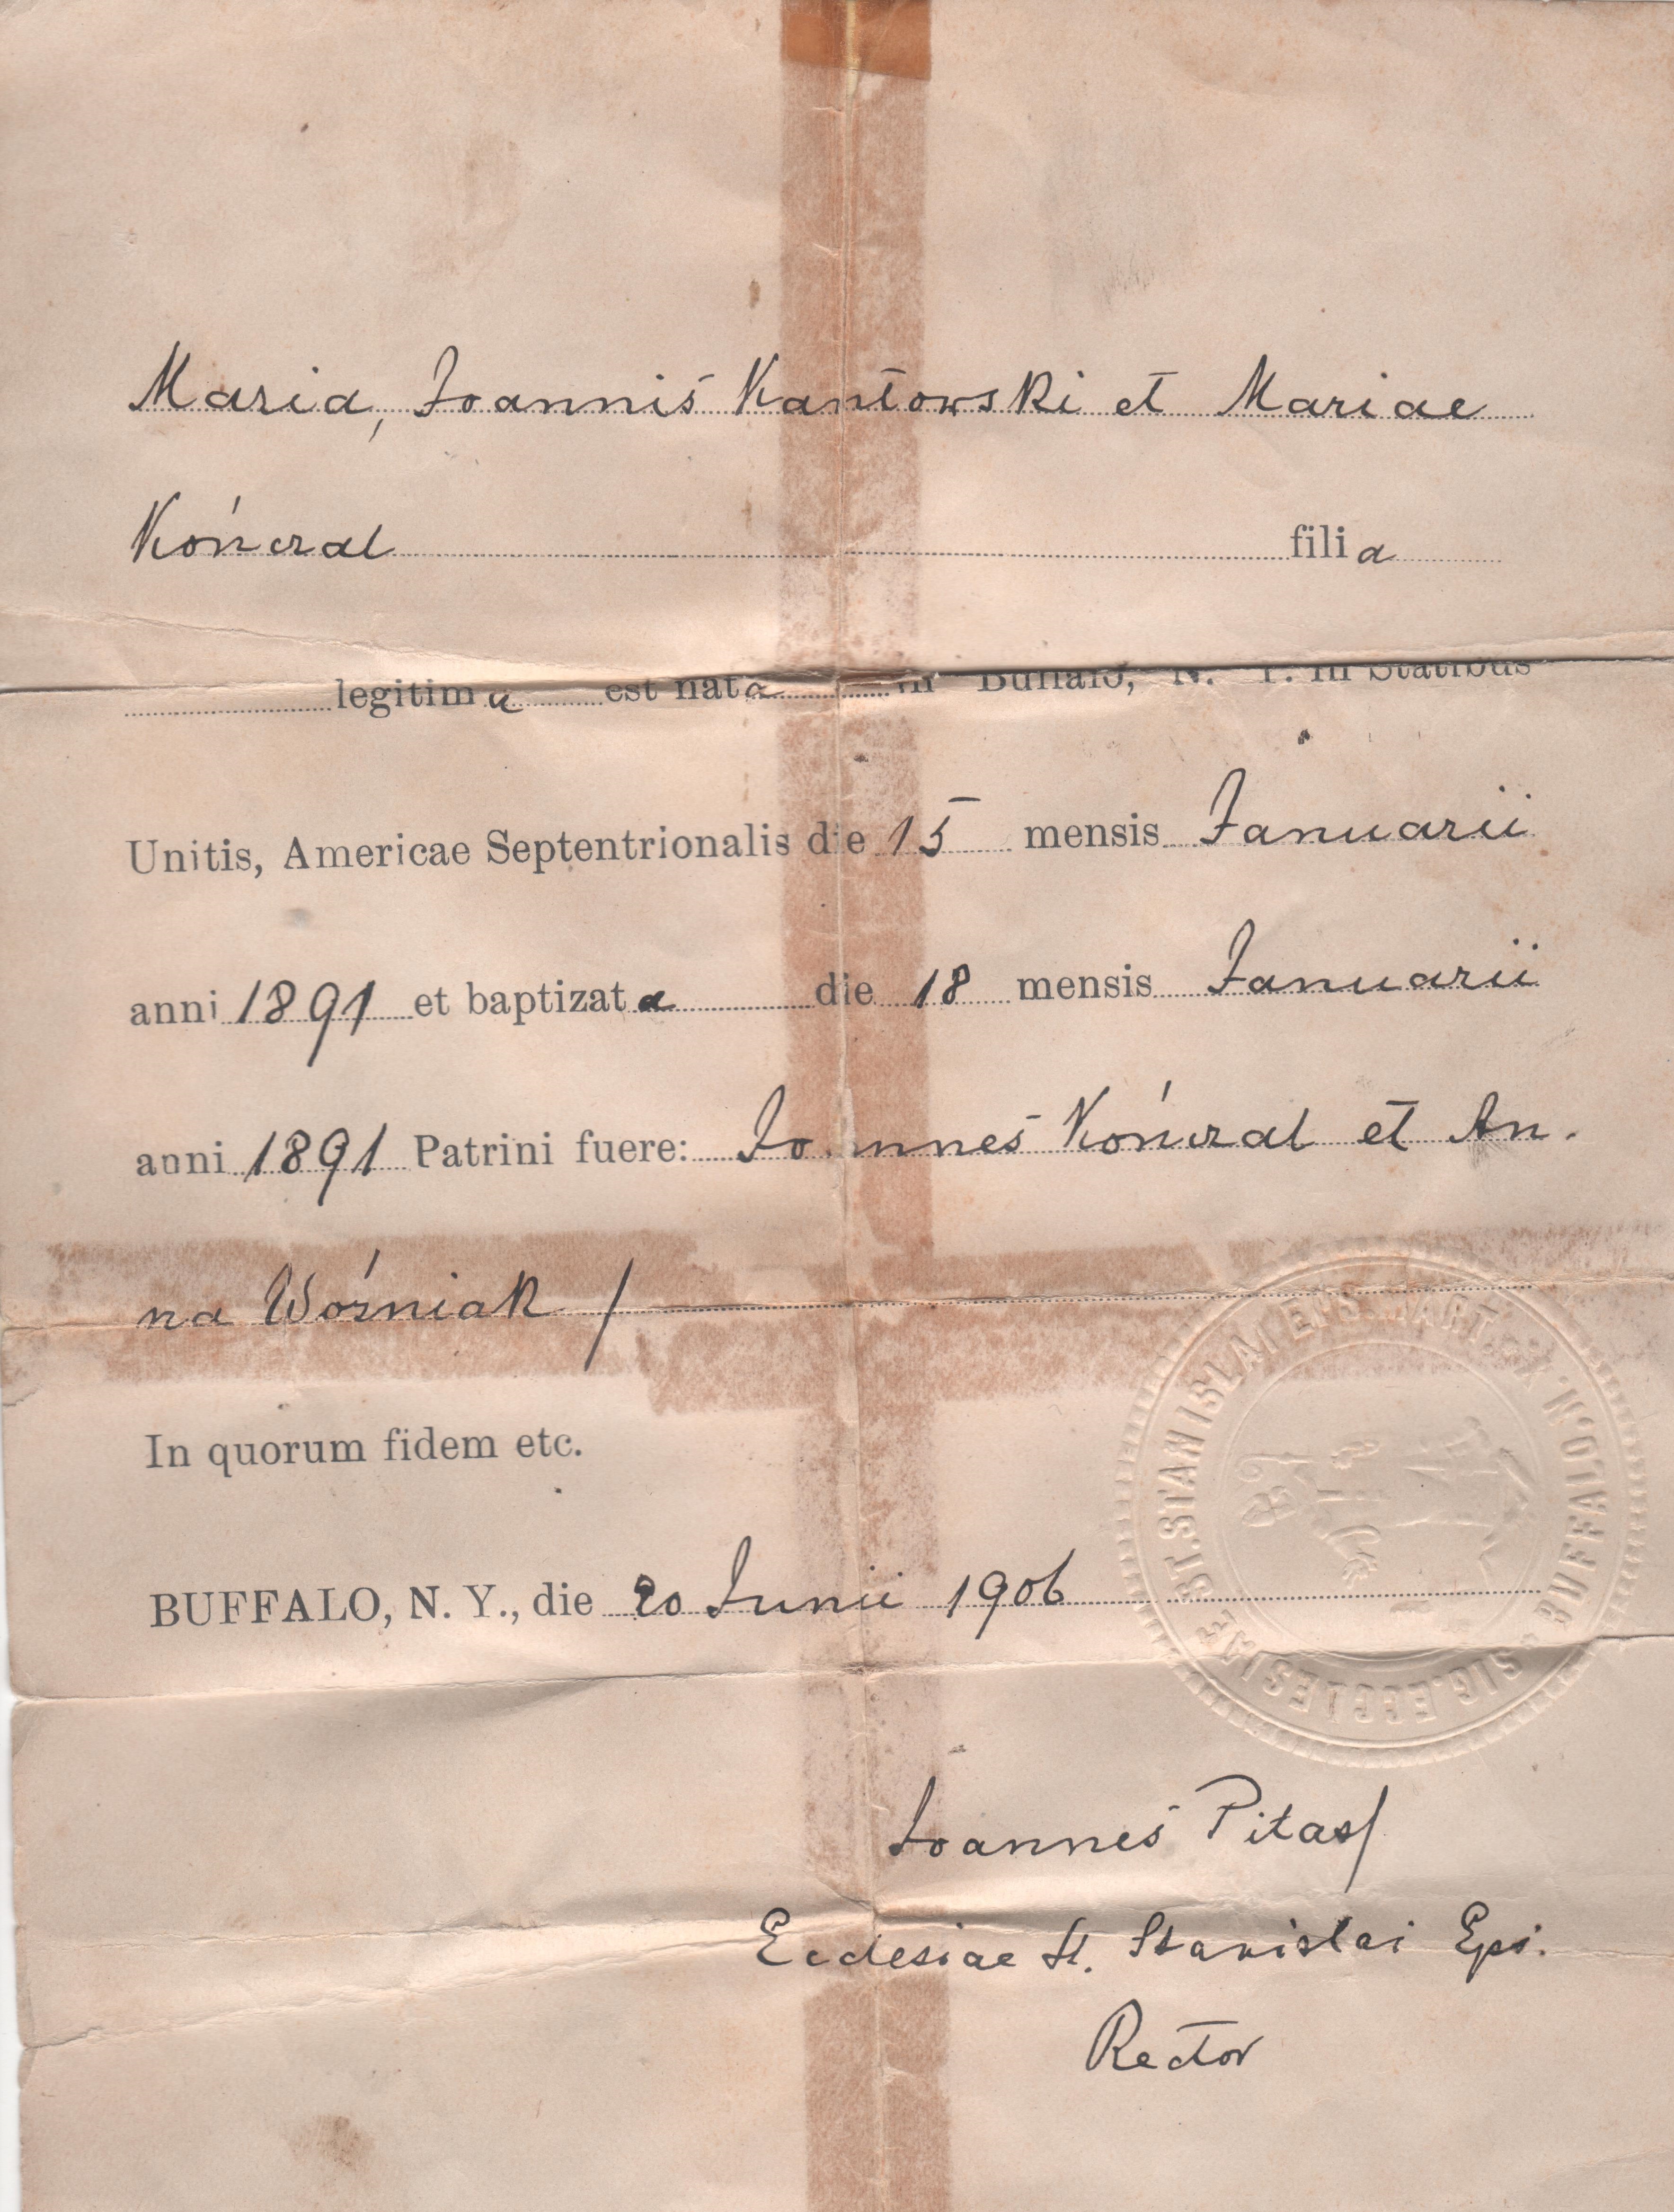 Maria, Joannis Kantowski et Mariae
Kończal filia
legitima est nata in Buffalo, N. Y. in Statibus
Unitis, Americae Septentrionalis die 15 mensis Januarii
anni 1891 et baptizata die 18 mensis Januarii
anni 1891 Patrini fuere: Joannes Kończal et An-
na Woźniak
In quorum fidem etc.
BUFFALO, N. Y., die 20 Junii 1906
SIG. ECCLESIÆ ST. STANISLAI EPIS. MART. BUFFALO, N.Y.
Joannes Pitass
Ecclesiae St. Stanislai Epi.
Rector